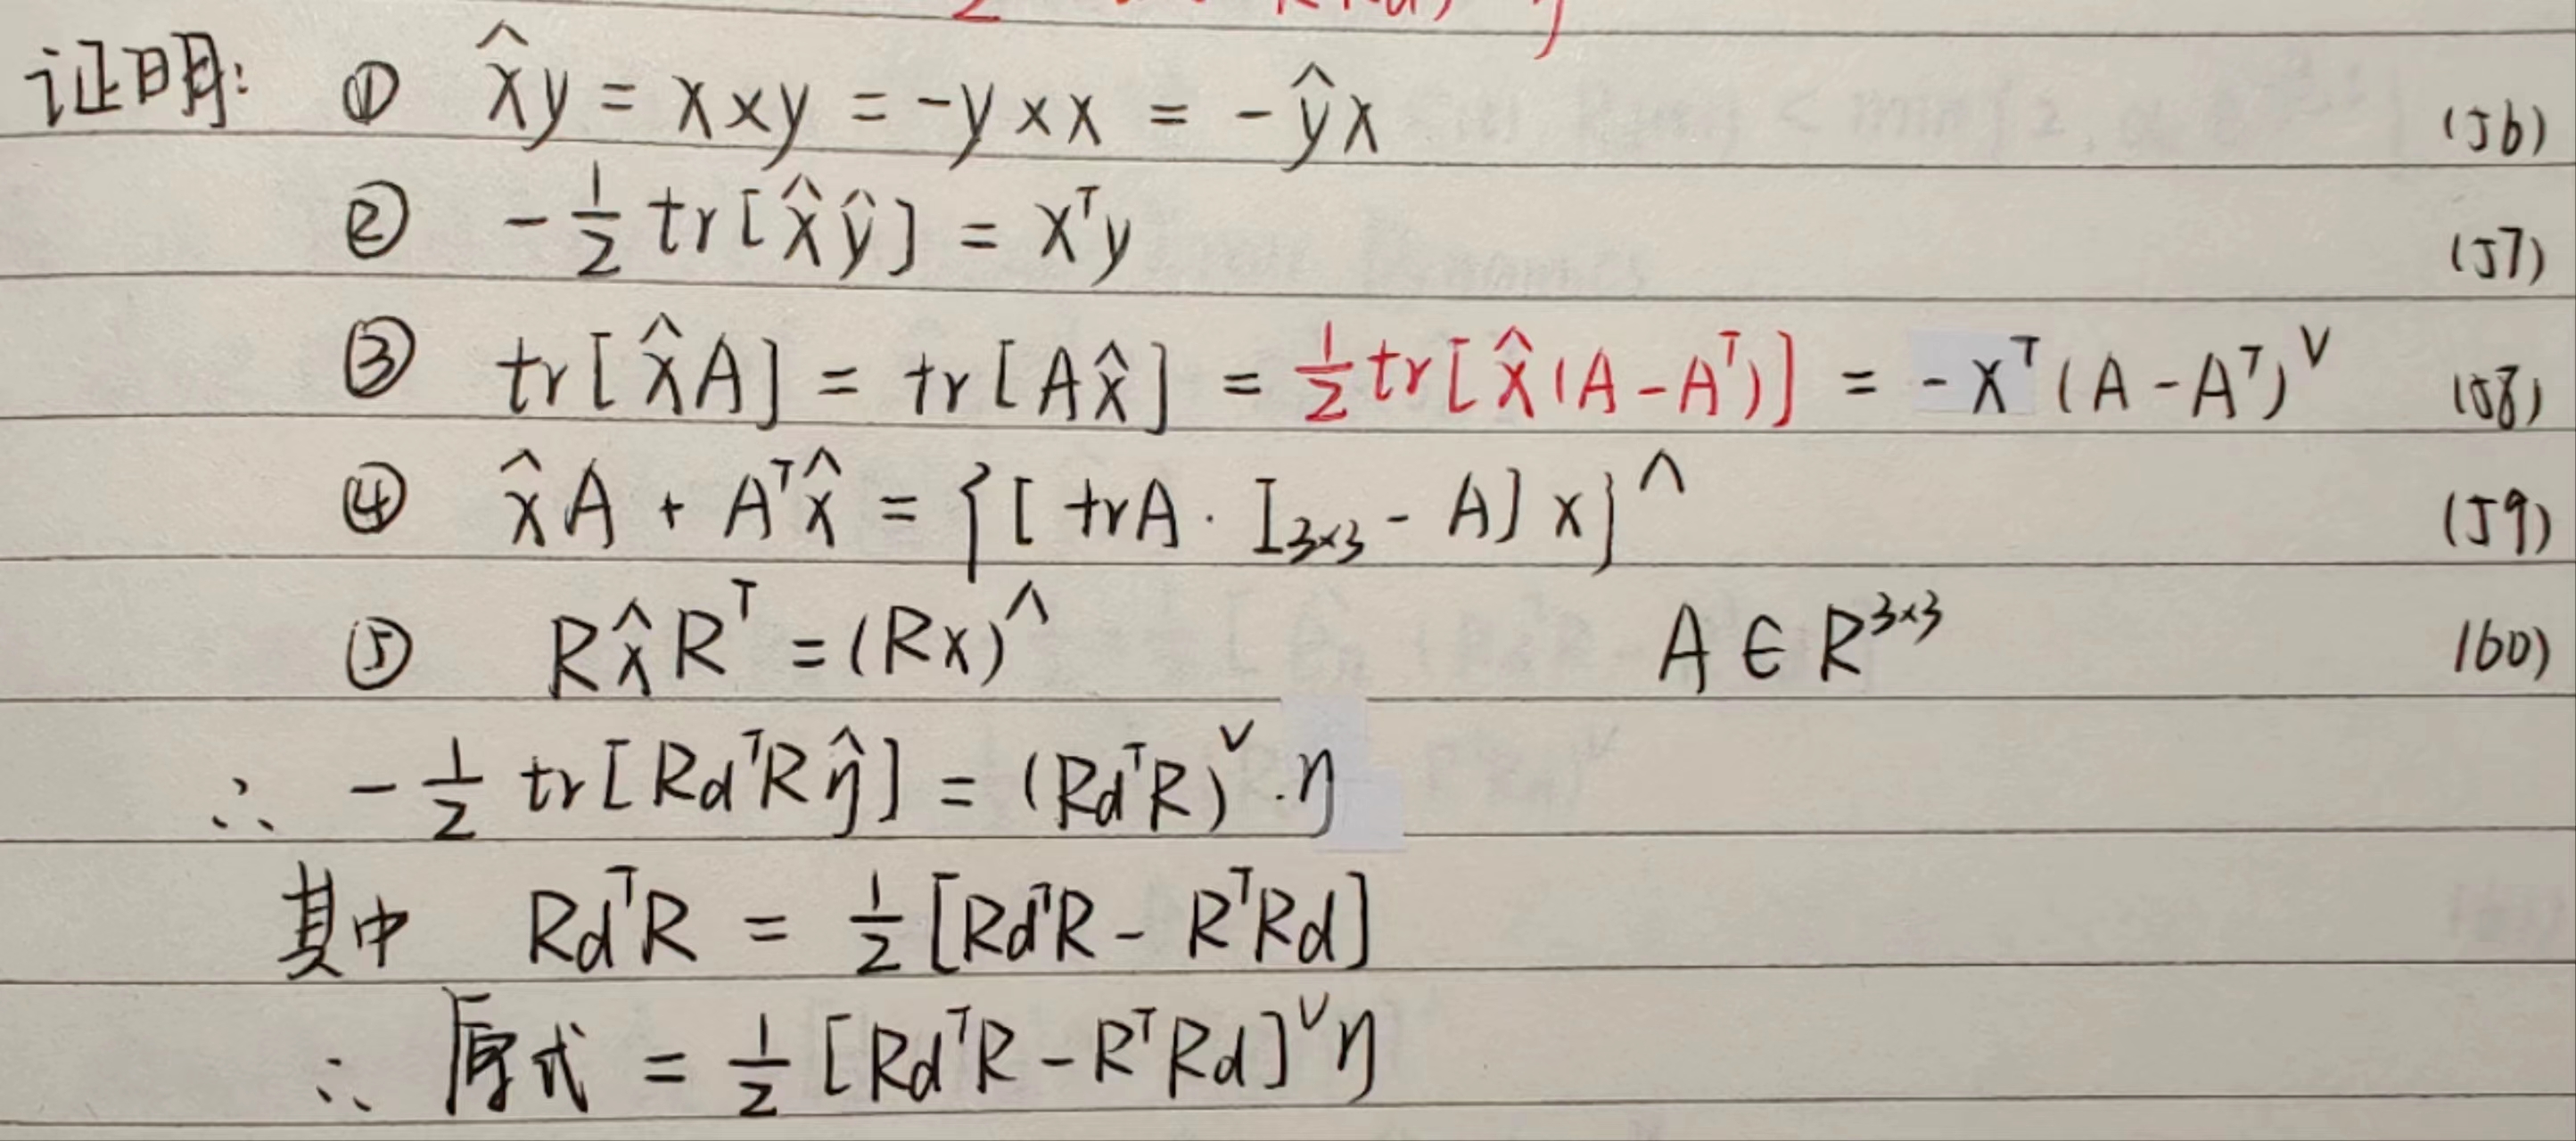 证明: ① x̂y = x×y = -y×x = -ŷx (56)
② -1/2 tr[x̂ŷ] = xᵀy (57)
③ tr[x̂A] = tr[Ax̂] = 1/2 tr[x̂(A-Aᵀ)] = -xᵀ(A-Aᵀ)^∨ (58)
④ x̂A + Aᵀx̂ = {[trA·I₃ₓ₃ - A]x}^∧ (59)
⑤ Rx̂Rᵀ = (Rx)^∧ A∈R³ˣ³ (60)
∴ -1/2 tr[RdᵀRη̂] = (RdᵀR)^∨·η
其中 RdᵀR = 1/2[RdᵀR - RᵀRd]
∴ 原式 = 1/2[RdᵀR - RᵀRd]^∨η